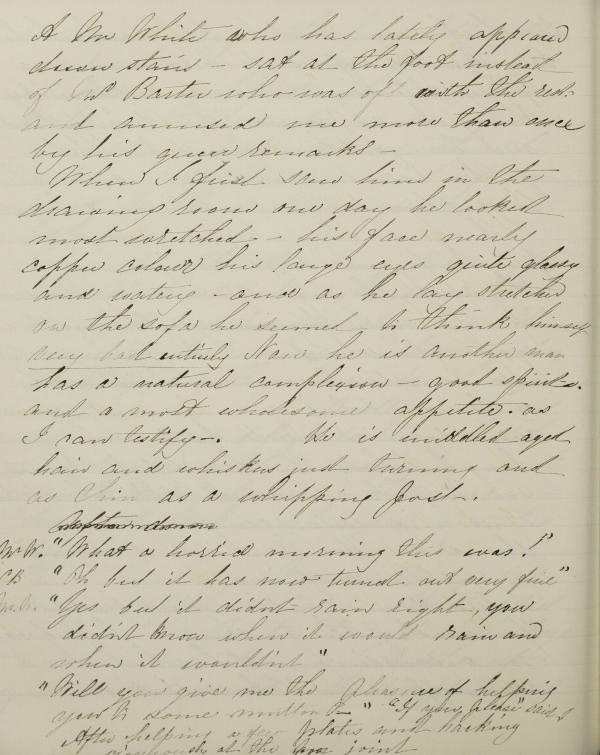 A Mr White who has lately appeared
down stairs - sat at the foot instead
of Mrs Barter who was off with the rest -
and amused me more than once
by his queer remarks -
When I first saw him in the
drawing room one day he looked
most wretched - his face nearly
copper colour his large eyes quite glassy
and watery - and as he lay stretched
on the sofa he seemed to think himself
very bad entirely Now he is another man
has a natural complexion - good spirits.
and a most wholesome appetite. as
I can testify -. He is middled aged
hair and whiskers just turning and
as thin as a whipping post -.
Mr W. "What a horrid morning this was!"
CB "Oh but it has now turned out very fine"
Mr W. "Yes but it didn't rain right, you
didn't know when it would rain and
when it wouldn't"
"Will you give me the pleasure of helping
you to some mutton" - "If you please" said I
After helping a few plates and hacking
at the joint